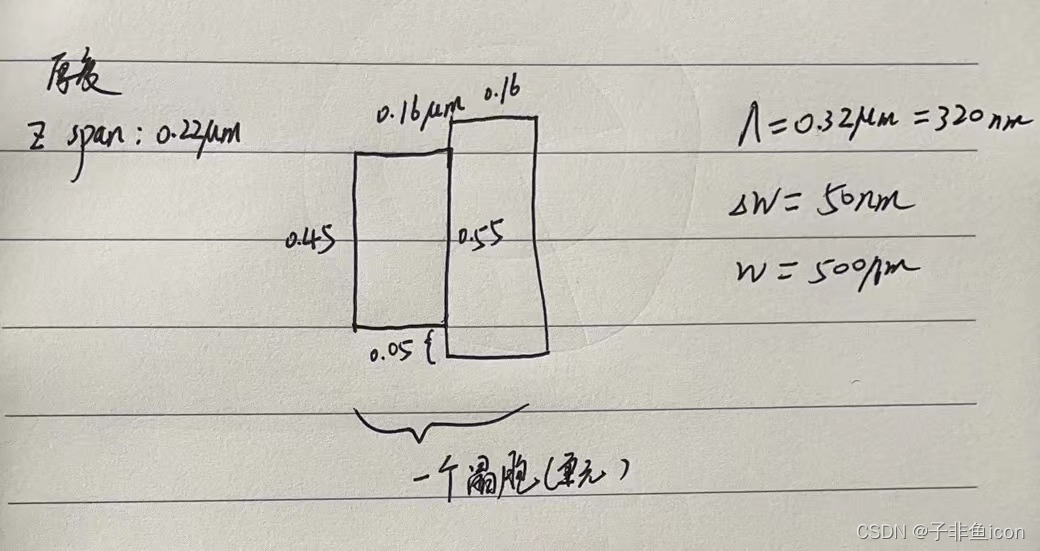 厚度
Z span: 0.22μm
0.16μm
0.16
0.45
0.55
0.05 {
一个晶胞(重元)
Λ=0.32μm=320nm
ΔW=50nm
W=500nm
CSDN @子非鱼icon